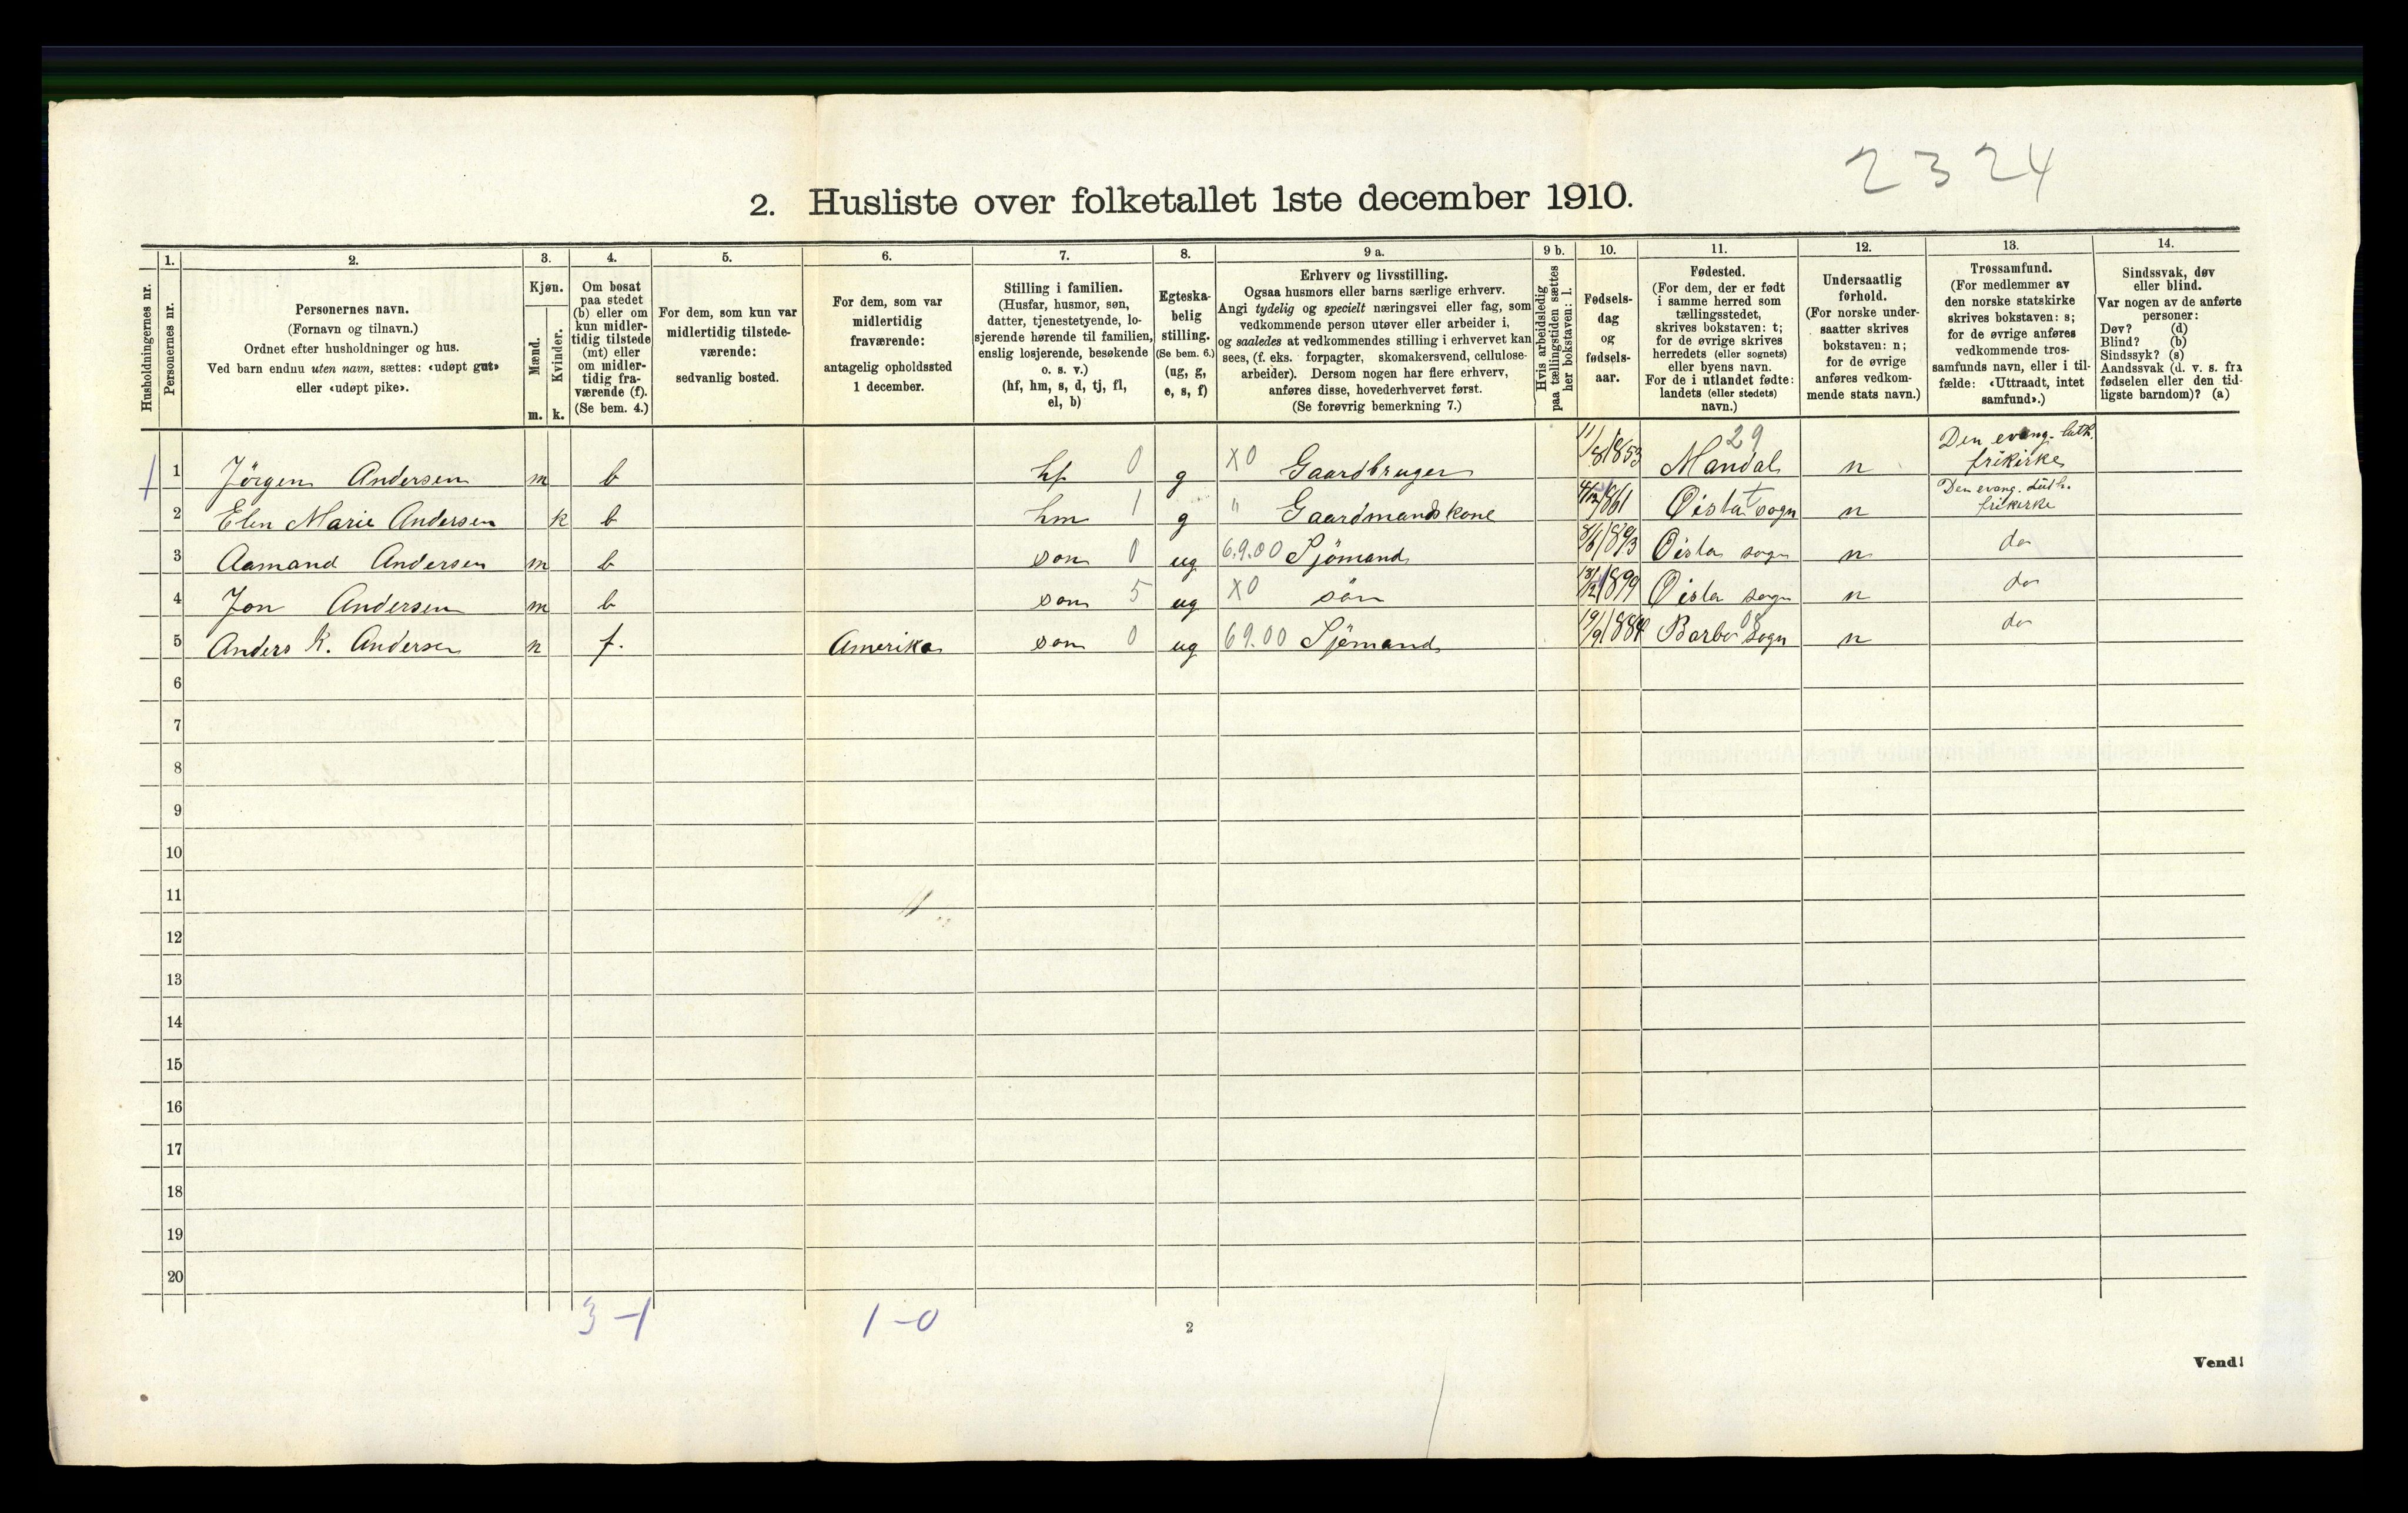 2324
2. Husliste over folketallet 1ste december 1910.
Husholdningernes nr.
1. Personernes nr.
2.
Personernes navn.
(Fornavn og tilnavn.)
Ordnet efter husholdninger og hus.
Ved barn endnu uten navn, sættes: «udøpt gut»
eller «udøpt pike».
3.
Kjøn.
Mænd. Kvinder.
m. k.
4.
Om bosat
paa stedet
(b) eller om
kun midler-
tidig tilstede
(mt) eller
om midler-
tidig fra-
værende (f).
(Se bem. 4.)
5.
For dem, som kun var
midlertidig tilstede-
værende:
sedvanlig bosted.
6.
For dem, som var
midlertidig
fraværende:
antagelig opholdssted
1 december.
7.
Stilling i familien.
(Husfar, husmor, søn,
datter, tjenestetyende, lo-
sjerende hørende til familien,
enslig losjerende, besøkende
o. s. v.)
(hf, hm, s, d, tj, fl,
el, b)
8.
Egteska-
belig
stilling.
(Se bem. 6.)
(ug, g,
e, s, f)
9 a.
Erhverv og livsstilling.
Ogsaa husmors eller barns særlige erhverv.
Angi tydelig og specielt næringsvei eller fag, som
vedkommende person utøver eller arbeider i,
og saaledes at vedkommendes stilling i erhvervet kan
sees, (f. eks. forpagter, skomakersvend, cellulose-
arbeider). Dersom nogen har flere erhverv,
anføres disse, hovederhvervet først.
(Se forøvrig bemerkning 7.)
9 b.
Hvis arbeidsledig
paa tællingstiden sættes
her bokstaven: l.
10.
Fødsels-
dag
og
fødsels-
aar.
11.
Fødested.
(For dem, der er født
i samme herred som
tællingsstedet,
skrives bokstaven: t;
for de øvrige skrives
herredets (eller sognets)
eller byens navn.
For de i utlandet fødte:
landets (eller stedets)
navn.)
12.
Undersaatlig
forhold.
(For norske under-
saatter skrives
bokstaven: n;
for de øvrige
anføres vedkom-
mende stats navn.)
13.
Trossamfund.
(For medlemmer av
den norske statskirke
skrives bokstaven: s;
for de øvrige anføres
vedkommende tros-
samfunds navn, eller i til-
fælde: «Uttraadt, intet
samfund».)
14.
Sindssvak, døv
eller blind.
Var nogen av de anførte
personer:
Døv? (d)
Blind? (b)
Sindssyk? (s)
Aandssvak (d. v. s. fra
fødselen eller den tid-
ligste barndom)? (a)
1 1 Jörgen Andersen m b hf 0 g X0 Gaardbruger 11/8 1853 29 Mandal n Den evang. luth. frikirke
2 Elen Marie Andersen k b hm 1 g " Gaardmandskone 1861 Øista sogn t n Den evang. Luth. frikirke
3 Aamand Andersen m b søn 0 ug 6.9.00 Sjömand 1893 Øista sogn n do
4 Jon Andersen m b søn 5 ug X0 sön 1899 Øista sogn n do
5 Anders K. Andersen m f. Amerika søn 0 ug 69.00 Sjömand 19/9 1884 Barbo sogn 08 n do
6
7
8
9
10
11
12
13
14
15
16
17
18
19
20
3-1 1-0
2
Vend!